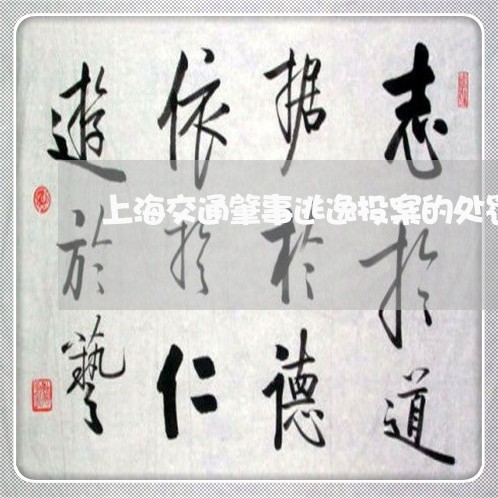 志於道
据於德
依於仁
遊於藝
上海交通肇事逃逸投案的处